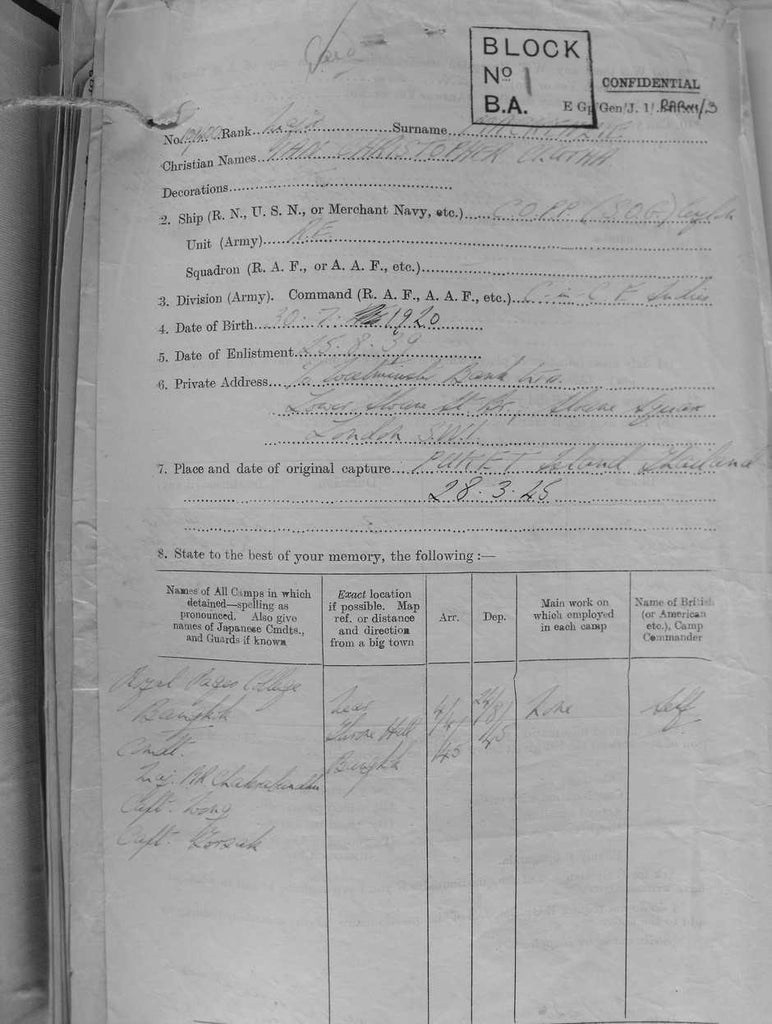 BLOCK
No 1
B.A.
CONFIDENTIAL
E Gp/Gen/J. 1/
No. Rank Major Surname
Christian Names CHRISTOPHER
Decorations
2. Ship (R. N., U. S. N., or Merchant Navy, etc.) C.O.P.P. (S.O.G.) Ceylon
Unit (Army) R.E.
Squadron (R. A. F., or A. A. F., etc.)
3. Division (Army). Command (R. A. F., A. A. F., etc.) C-in-C E. Indies
4. Date of Birth 30. 7. 1920
5. Date of Enlistment 25.8.39
6. Private Address Westminster Bank Ltd.
Lower Sloane St Br, Sloane Square
London S.W.1.
7. Place and date of original capture PUKET Island Thailand
28.3.45
8. State to the best of your memory, the following :—
Names of All Camps in which detained—spelling as pronounced. Also give names of Japanese Cmdts., and Guards if known
Exact location if possible. Map ref. or distance and direction from a big town
Arr.
Dep.
Main work on which employed in each camp
Name of British (or American etc.), Camp Commander
College
Bangkok
Cmdt.
Maj.
Capt. Long
Capt.
Near
Throne Hall
Bangkok
4/
/45
24/
8/
45
None
Self